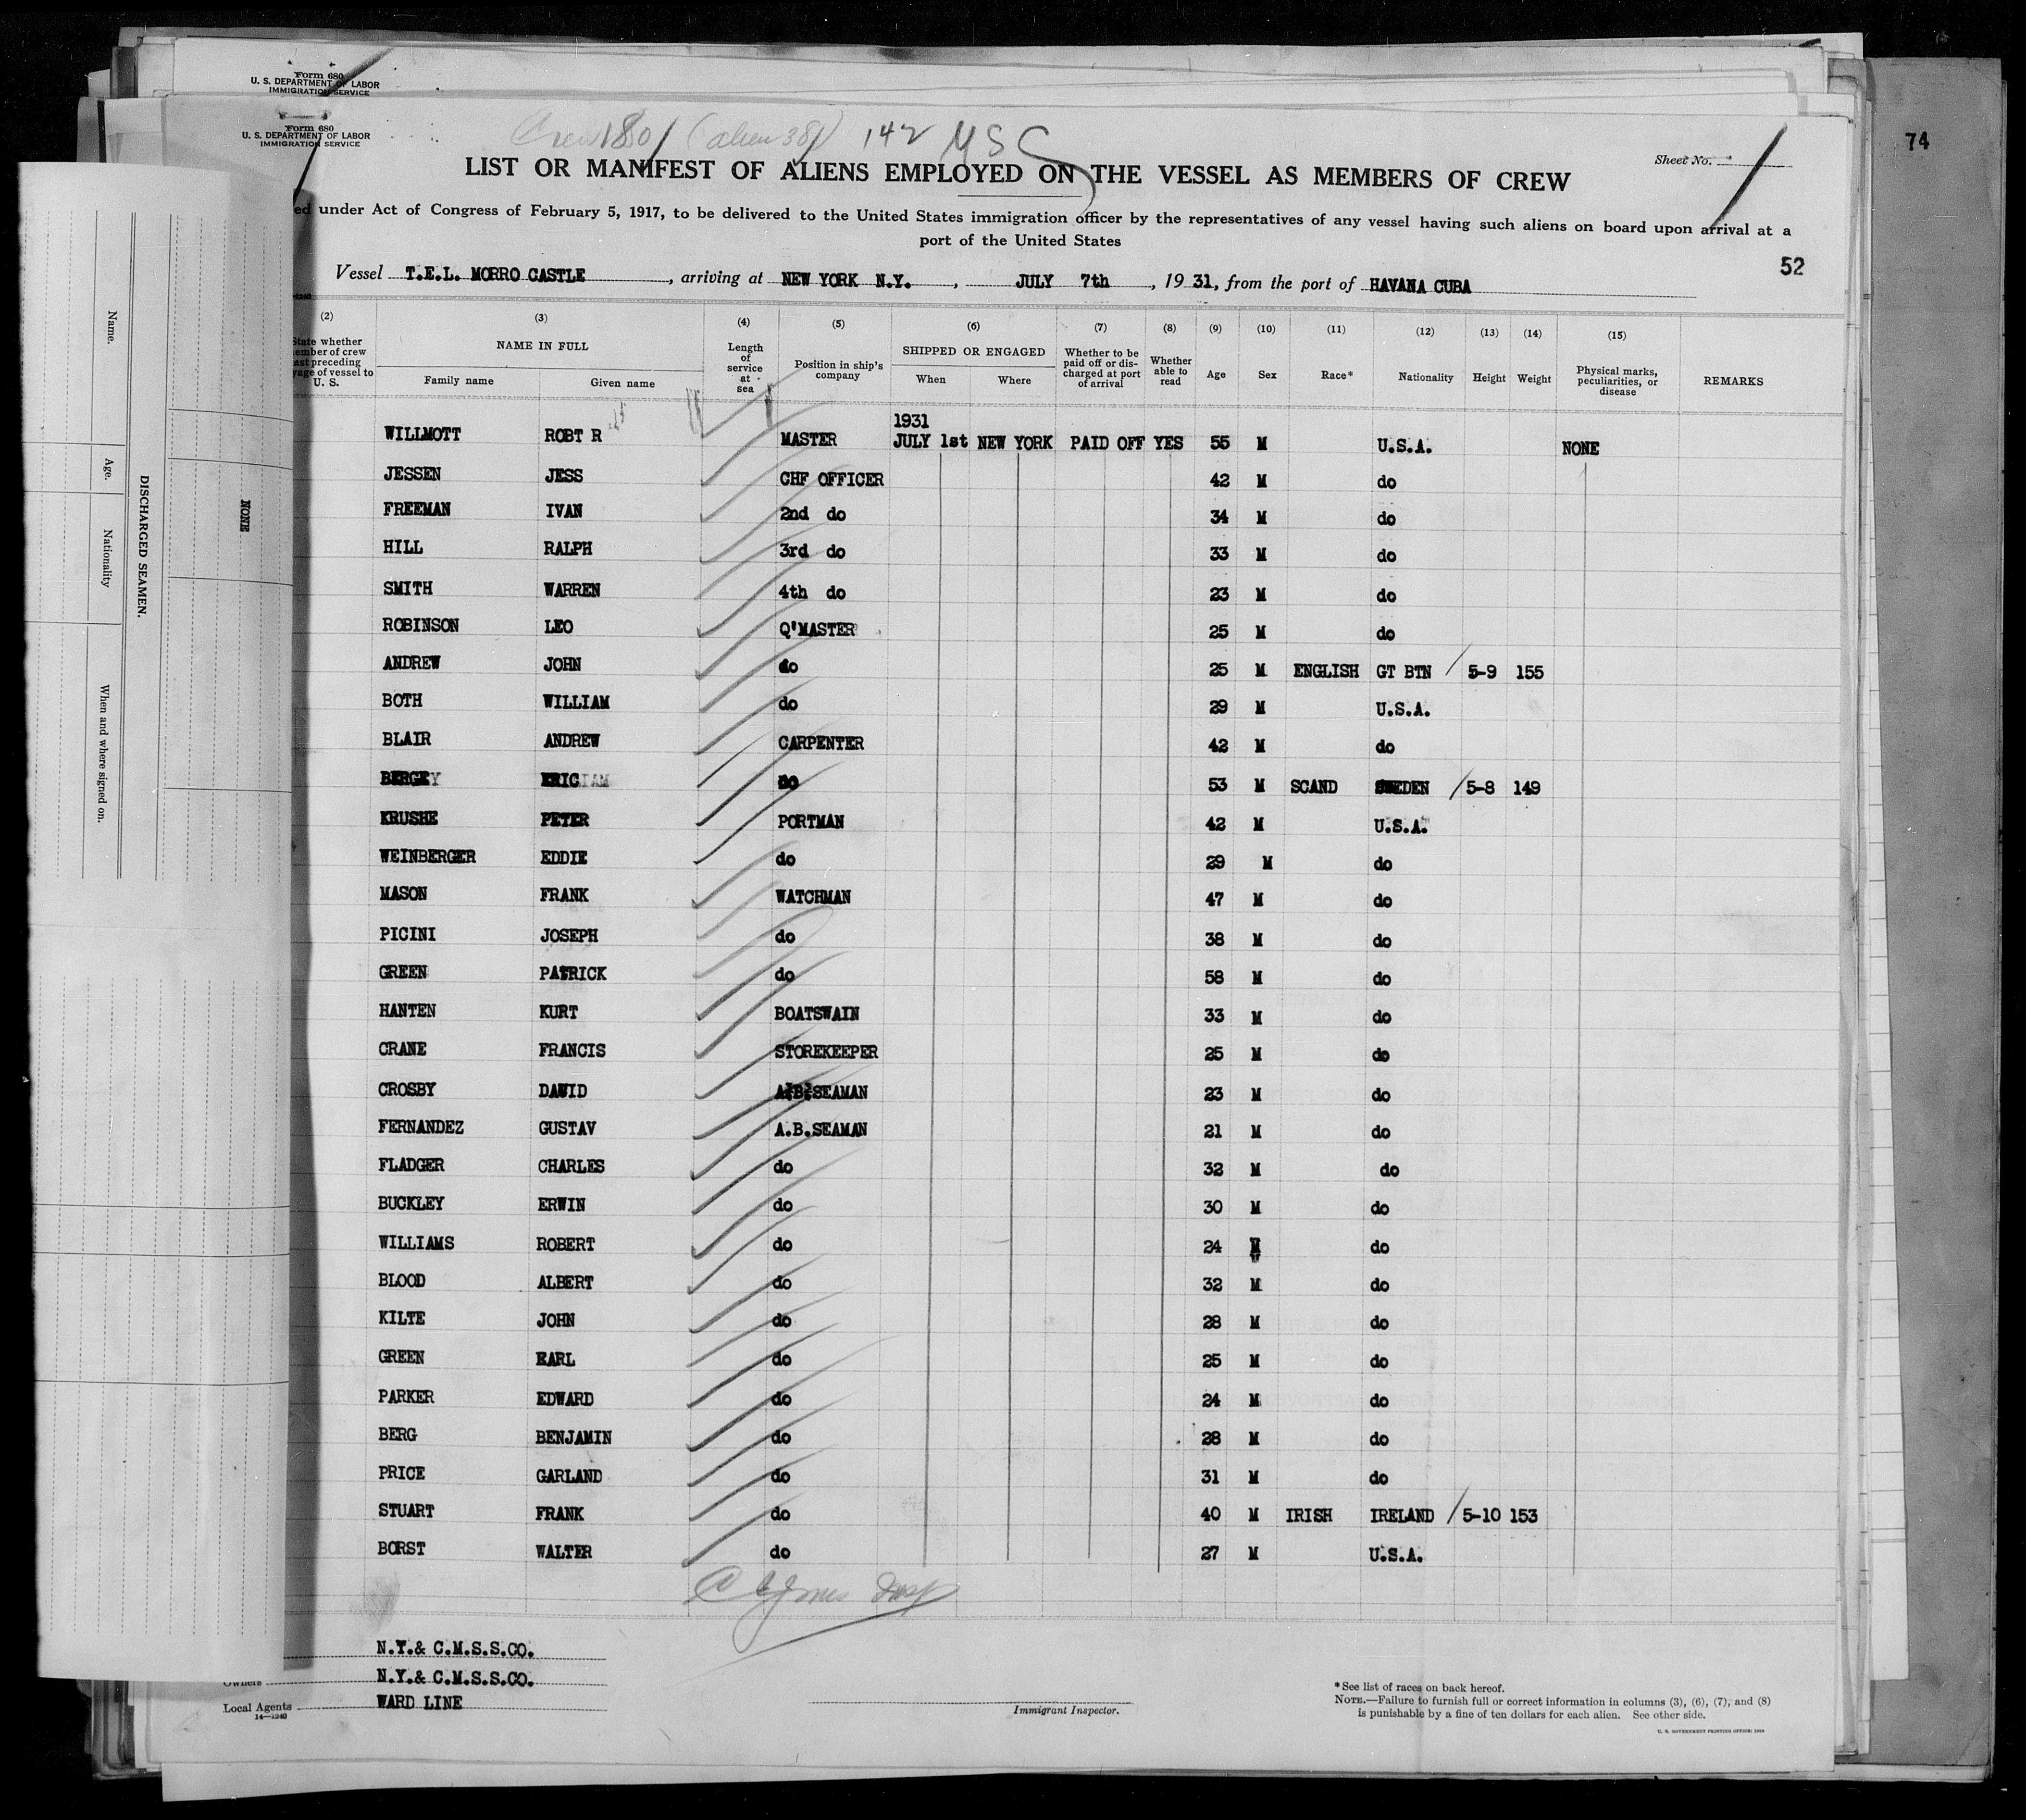 Form 680
U. S. DEPARTMENT OF LABOR
IMMIGRATION SERVICE
Form 680
U. S. DEPARTMENT OF LABOR
IMMIGRATION SERVICE
74
Crew 180 (alien 38) 142 USC
Sheet No.
LIST OR MANIFEST OF ALIENS EMPLOYED ON THE VESSEL AS MEMBERS OF CREW
ed under Act of Congress of February 5, 1917, to be delivered to the United States immigration officer by the representatives of any vessel having such aliens on board upon arrival at a
port of the United States
52
Vessel T.E.L. MORRO CASTLE, arriving at NEW YORK N.Y., JULY 7th, 19 31, from the port of HAVANA CUBA
(2) (3) (4) (5) (6) (7) (8) (9) (10) (11) (12) (13) (14) (15)
State whether member of crew last preceding voyage of vessel to U. S. NAME IN FULL Family name Given name Length of service at sea Position in ship's company SHIPPED OR ENGAGED When Where Whether to be paid off or discharged at port of arrival Whether able to read Age Sex Race* Nationality Height Weight Physical marks, peculiarities, or disease REMARKS
1931
WILLMOTT ROBT R MASTER JULY 1st NEW YORK PAID OFF YES 55 M U.S.A. NONE
JESSEN JESS CHF OFFICER 42 M do
FREEMAN IVAN 2nd do 34 M do
HILL RALPH 3rd do 33 M do
SMITH WARREN 4th do 23 M do
ROBINSON LEO Q'MASTER 25 M do
ANDREW JOHN do 25 M ENGLISH GT BTN / 5-9 155
BOTH WILLIAM do 29 M U.S.A.
BLAIR ANDREW CARPENTER 42 M do
ERIC do 53 M SCAND SWEDEN / 5-8 149
KRUSHE PETER PORTMAN 42 M U.S.A.
WEINBERGER EDDIE do 29 M do
MASON FRANK WATCHMAN 47 M do
PICINI JOSEPH do 38 M do
GREEN PATRICK do 58 M do
HANTEN KURT BOATSWAIN 33 M do
CRANE FRANCIS STOREKEEPER 25 M do
CROSBY DAVID A.B.SEAMAN 23 M do
FERNANDEZ GUSTAV A.B.SEAMAN 21 M do
FLADGER CHARLES do 32 M do
BUCKLEY ERWIN do 30 M do
WILLIAMS ROBERT do 24 M do
BLOOD ALBERT do 32 M do
KILTE JOHN do 28 M do
GREEN EARL do 25 M do
PARKER EDWARD do 24 M do
BERG BENJAMIN do 28 M do
PRICE GARLAND do 31 M do
STUART FRANK do 40 M IRISH IRELAND / 5-10 153
BORST WALTER do 27 M U.S.A.
N.Y.& C.M.S.S.CO.
Owners N.Y.& C.M.S.S.CO.
Local Agents WARD LINE
14—1240
Immigrant Inspector.
*See list of races on back hereof.
NOTE.—Failure to furnish full or correct information in columns (3), (6), (7), and (8)
is punishable by a fine of ten dollars for each alien. See other side.
U. S. GOVERNMENT PRINTING OFFICE:
DISCHARGED SEAMEN.
Name.
Age.
Nationality
When and where signed on.
NONE